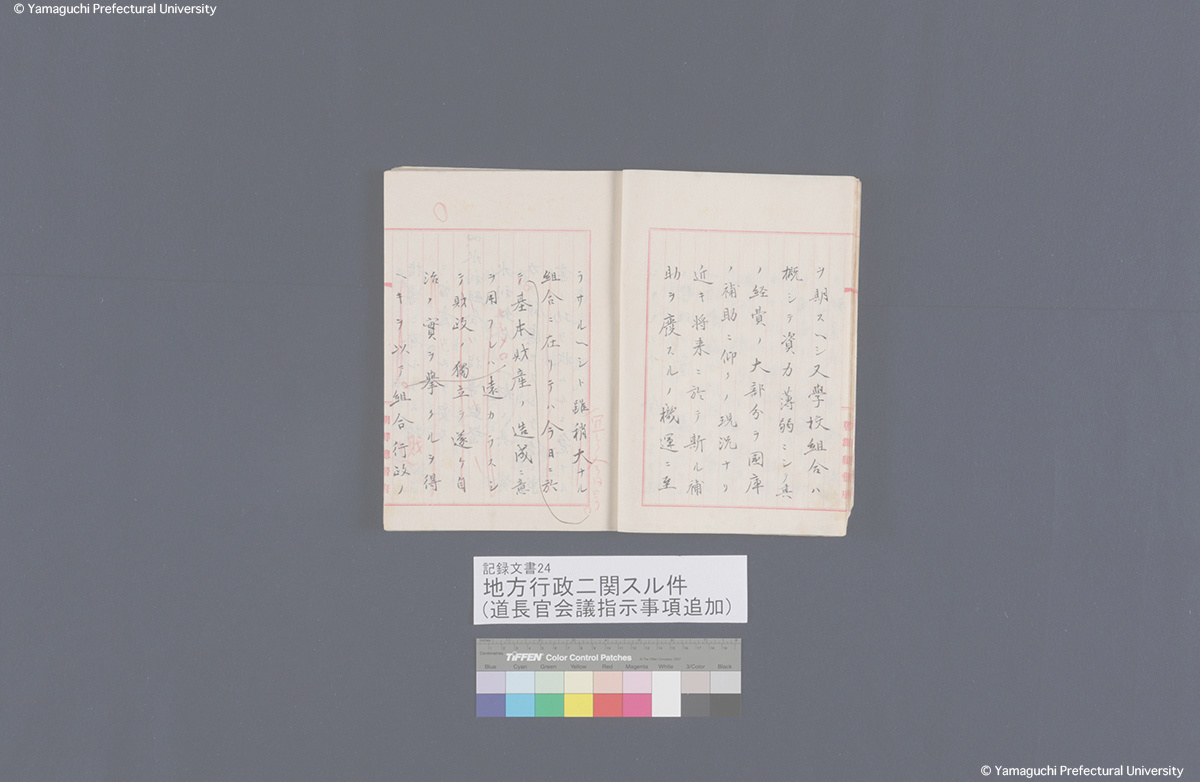 © Yamaguchi Prefectural University
ヲ期スヘシ又學校組合ハ
概シテ資力薄弱ニシテ其
ノ經費ノ大部分ヲ國庫
ノ補助ニ仰クノ現況ナリ
近キ將来ニ於テ斯ル補
助ヲ廢スルノ機運ニ至
ラサルヘシト雖稍大ナル
組合ニ在リテハ今日ニ於
テ基本財産ノ造成ニ意
ヲ用フレハ遠カラスシ
テ財政ノ獨立ヲ遂ケ自
治ノ實ヲ擧クルヲ得
ヘキヲ以テ組合行政ノ
記録文書24
地方行政二関スル件
(道長官会議指示事項追加)
TIFFEN Color Control Patches
Blue Cyan Green Yellow Red Magenta White 3/Color Black
© Yamaguchi Prefectural University